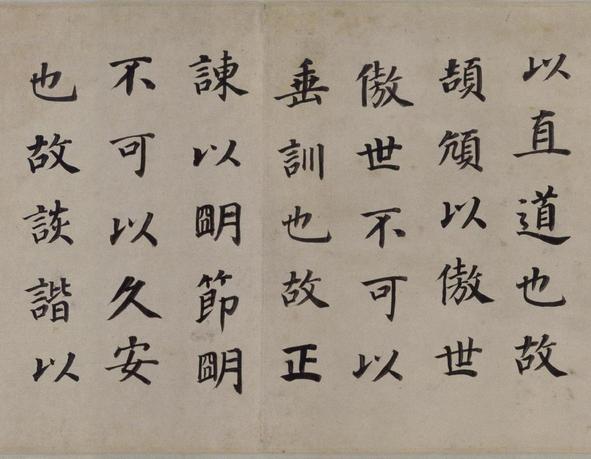 以直道也故
頡頏以傲世
傲世不可以
垂訓也故正
諫以朙節朙
不可以久安
也故詼諧以